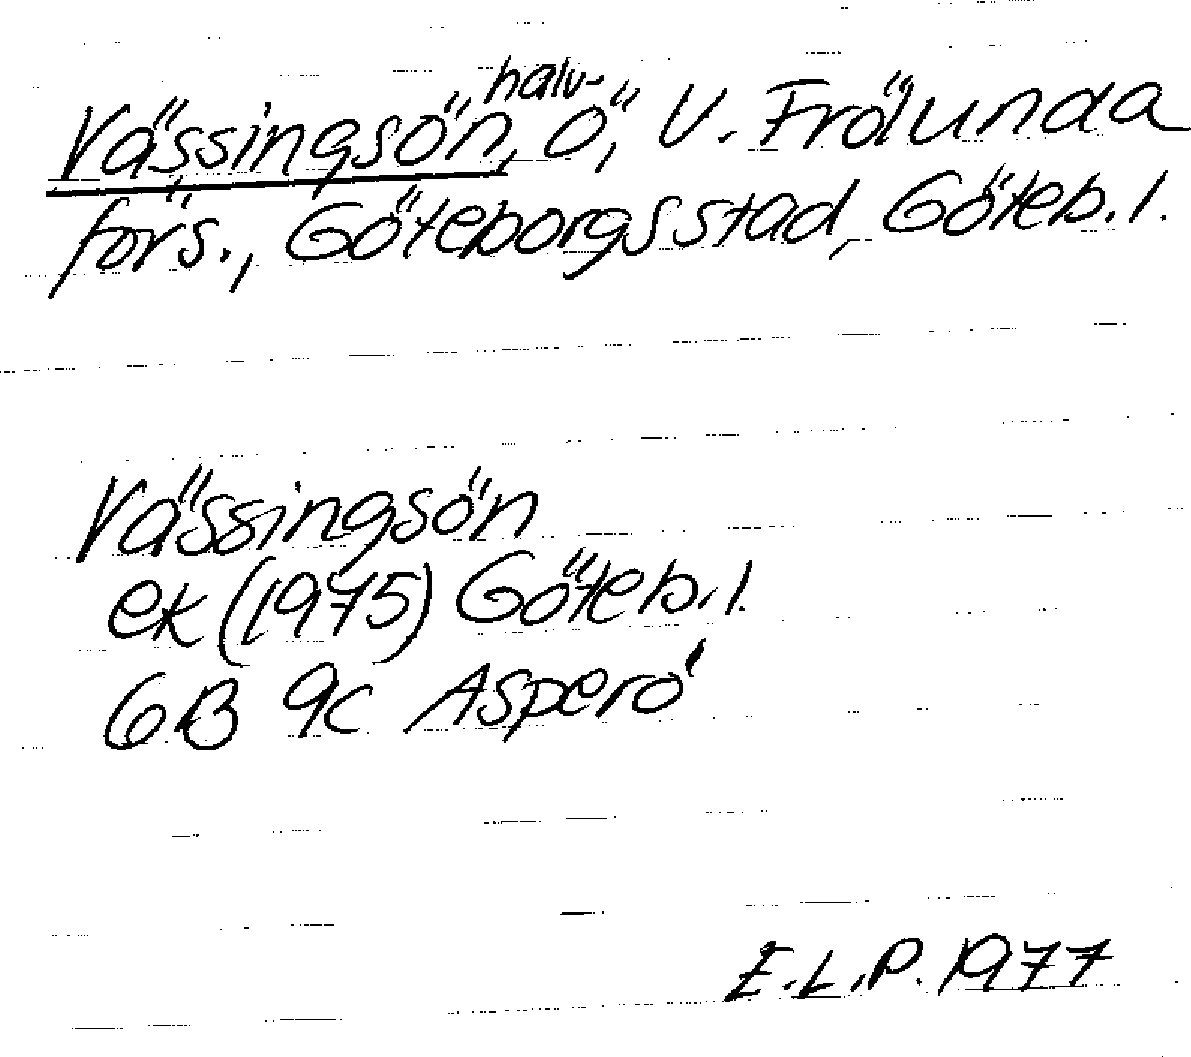 Vässingsön, halv-ö, V. Frölunda
förs., Göteborgs stad, Göteb. l.
Vässingsön
ek (1975) Göteb. l.
6B 9c Asperö
E.L.P. 1977